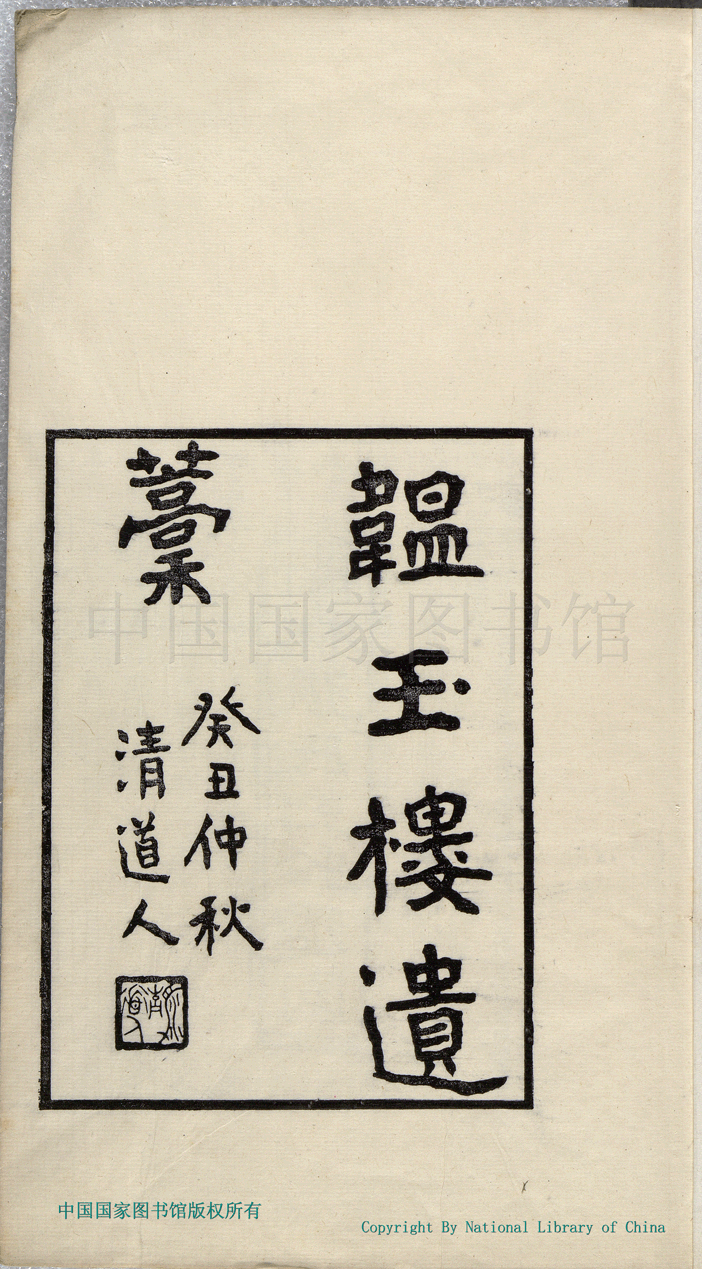 韞玉樓遺
藁
癸丑仲秋
清道人
中国国家图书馆
中国国家图书馆版权所有
Copyright By National Library of China